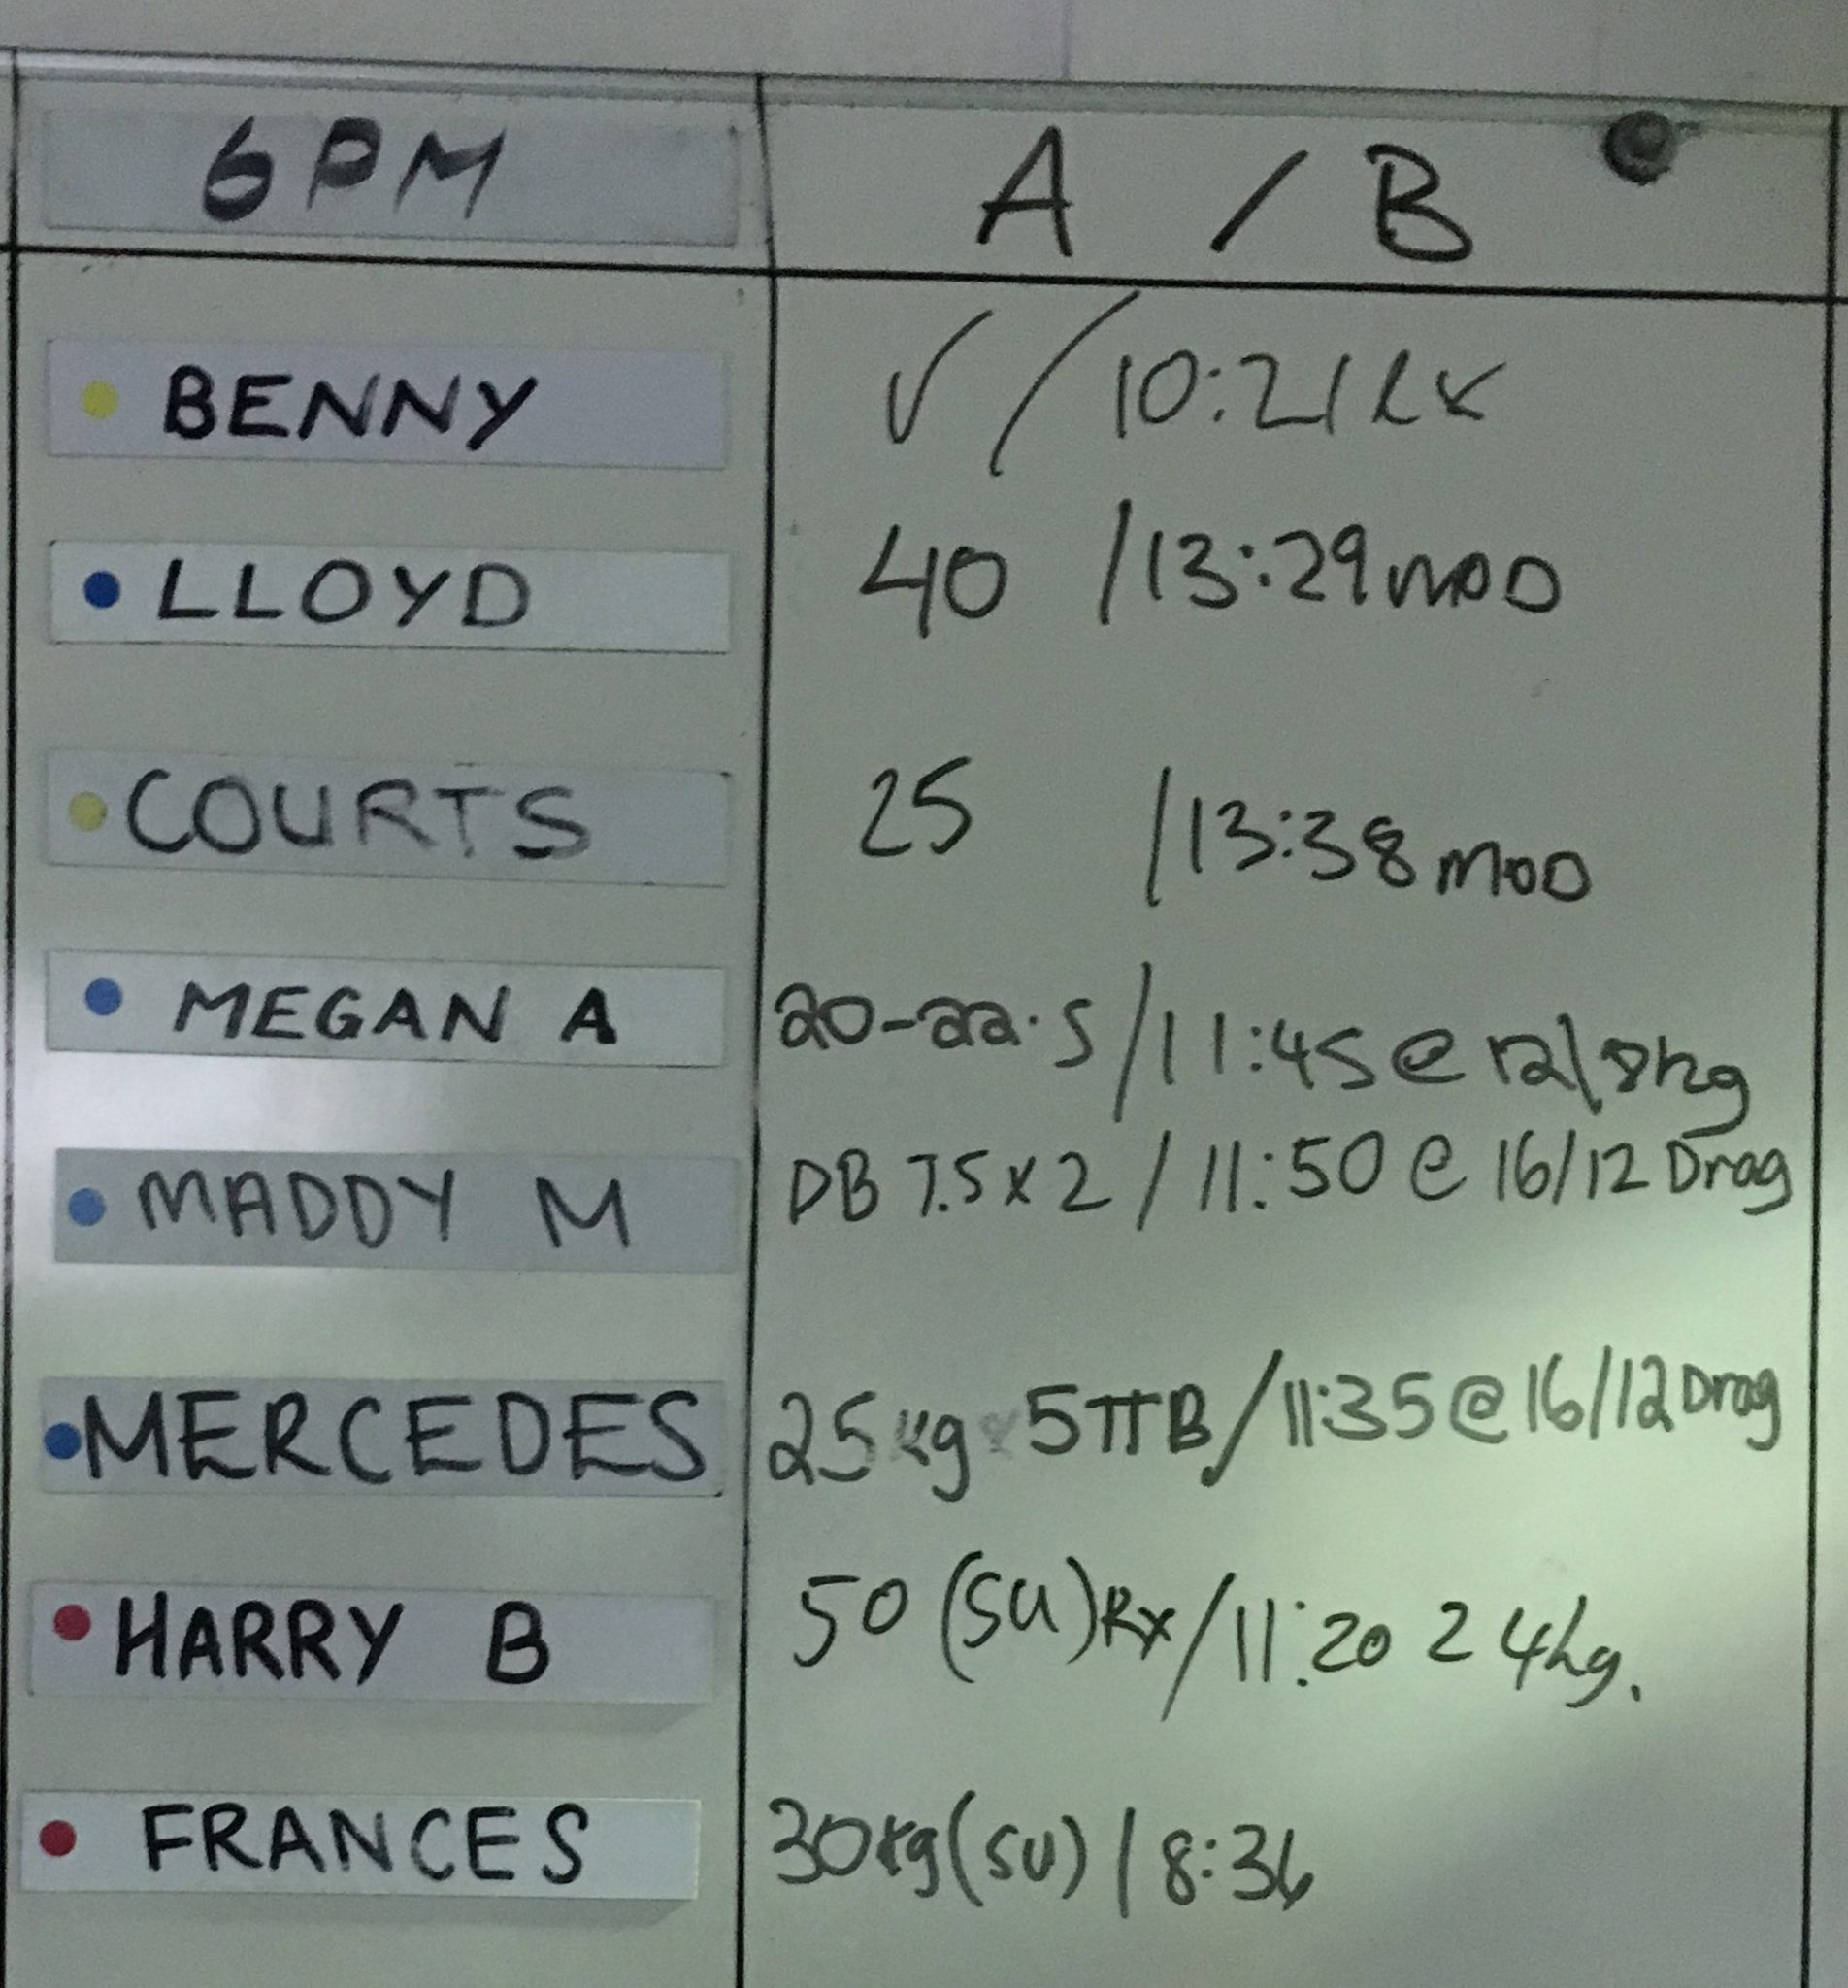 6PM A / B
BENNY ✓ / 10:21 RX
LLOYD 40 / 13:29 MOD
COURTS 25 / 13:38 MOD
MEGAN A 20-22.5 / 11:45 @ 12\8kg
MADDY M DB 7.5 x 2 / 11:50 @ 16/12 Drag
MERCEDES 25kg 5TTB / 11:35 @ 16/12 Drag
HARRY B 50 (SU) Rx / 11:20 24kg.
FRANCES 30kg (SU) / 8:36